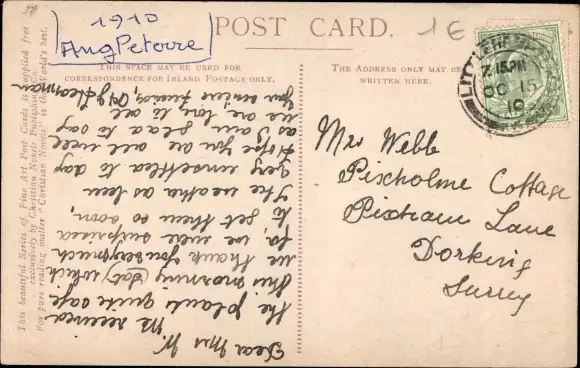 1910
Angleterre
POST CARD.
1 E
THIS SPACE MAY BE USED FOR
CORRESPONDENCE FOR INLAND POSTAGE ONLY.
THE ADDRESS ONLY MAY BE
WRITTEN HERE.
7.15PM
OC 15
10
Mrs Webb
Pixholme Cottage
Pixham Lane
Dorking
Surrey
Dear Mrs W.
We received
the plants quite safe
this morning (Sat) which
we thank you very much
for, we were surprised
to get them so soon,
The weather as been
very unsettled to day
Hope you are all well
as I am glad to say
we are, love to all
Your sincere friend,
This beautiful Series of Fine Art Post Cards is supplied free
exclusively by Christian Novels Publishing Co.
For pure reading matter "Christian Novels" is the World's best.